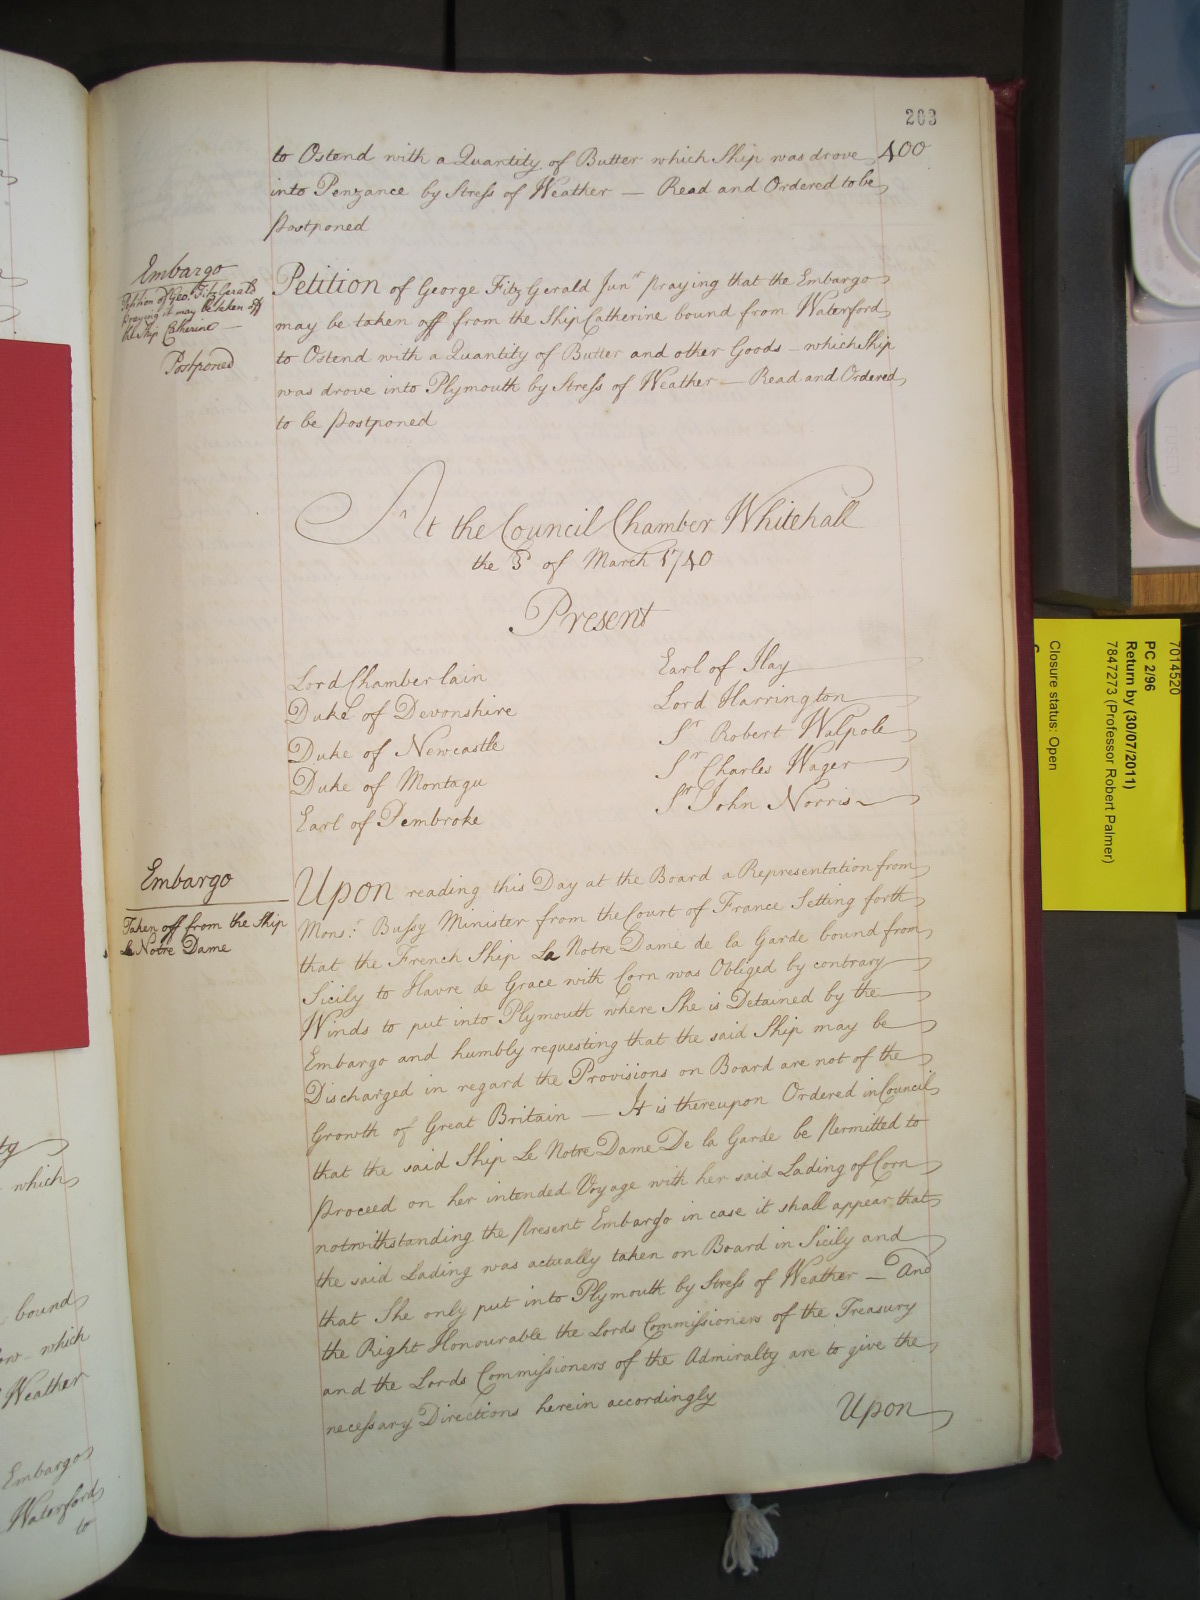 203
400
to Ostend with a Quantity of Butter which Ship was drove
into Penzance by Stress of Weather — Read and Ordered to be
Postponed
Embargo
Petition of Geo. Fitz Gerald
praying it may be taken off
the Ship Catherine —
Postponed
Petition of George Fitz Gerald Junr praying that the Embargo
may be taken off from the Ship Catherine bound from Waterford
to Ostend with a Quantity of Butter and other Goods – which Ship
was drove into Plymouth by Stress of Weather — Read and Ordered
to be Postponed
At the Council Chamber Whitehall
the 3d of March 1740
Present
Lord Chamberlain
Duke of Devonshire
Duke of Newcastle
Duke of Montagu
Earl of Pembroke
Earl of Ilay
Lord Harrington
Sr Robert Walpole
Sr Charles Wager
Sr John Norris
Embargo
Taken off from the Ship
Le Notre Dame
Upon reading this Day at the Board a Representation from
Monsr. Bussy Minister from the Court of France Setting forth
that the French Ship La Notre Dame de la Garde bound from
Sicily to Havre de Grace with Corn was Obliged by contrary
Winds to put into Plymouth where She is Detained by the
Embargo and humbly requesting that the said Ship may be
Discharged in regard the Provisions on Board are not of the
Growth of Great Britain — It is thereupon Ordered in Council
that the said Ship Le Notre Dame De la Garde be Permitted to
Proceed on her intended Voyage with her said Lading of Corn
notwithstanding the present Embargo in case it shall appear that
the said Lading was actually taken on Board in Sicily and
that She only put into Plymouth by Stress of Weather — And
the Right Honourable the Lords Commissioners of the Treasury
and the Lords Commissioners of the Admiralty are to give the
necessary Directions herein accordingly
Upon
which
bound
which
Weather
Embargo
Waterford
to
7014520
PC 2/96
Return by (30/07/2011)
7847273 (Professor Robert Palmer)
Closure status: Open